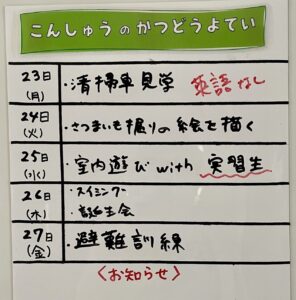 こんしゅうのかつどうよてい
23日 ・清掃車見学 英語なし
(月)
24日 ・さつまいも掘りの絵を描く
(火)
25日 ・室内遊び with 実習生
(水)
26日 ・スイミング
(木) ・誕生会
27日 ・避難訓練
(金)
〈お知らせ〉